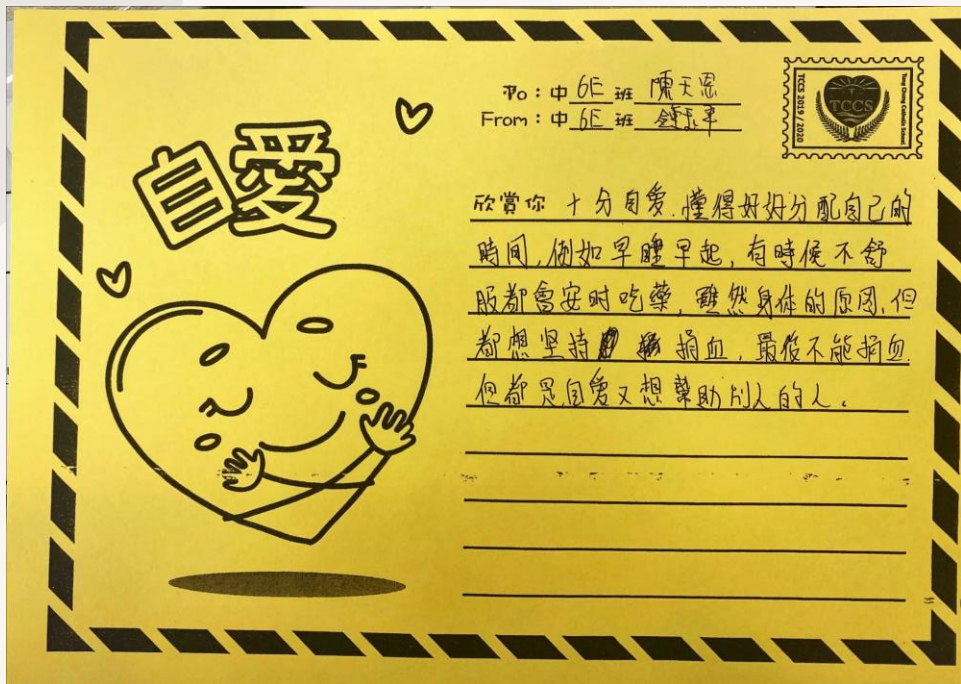 自愛
To：中 6E 班 陳天恩
From：中 6E 班
TCCS 2019 / 2020
TCCS
Tung Chung Catholic School
欣賞你 十分自愛，懂得好好分配自己的
時間，例如早睡早起，有時候不舒
服都會安时吃藥，雖然身体的原因，但
都想坚持 捐血，最後不能捐血，
但都是自愛又想幫助別人的人。